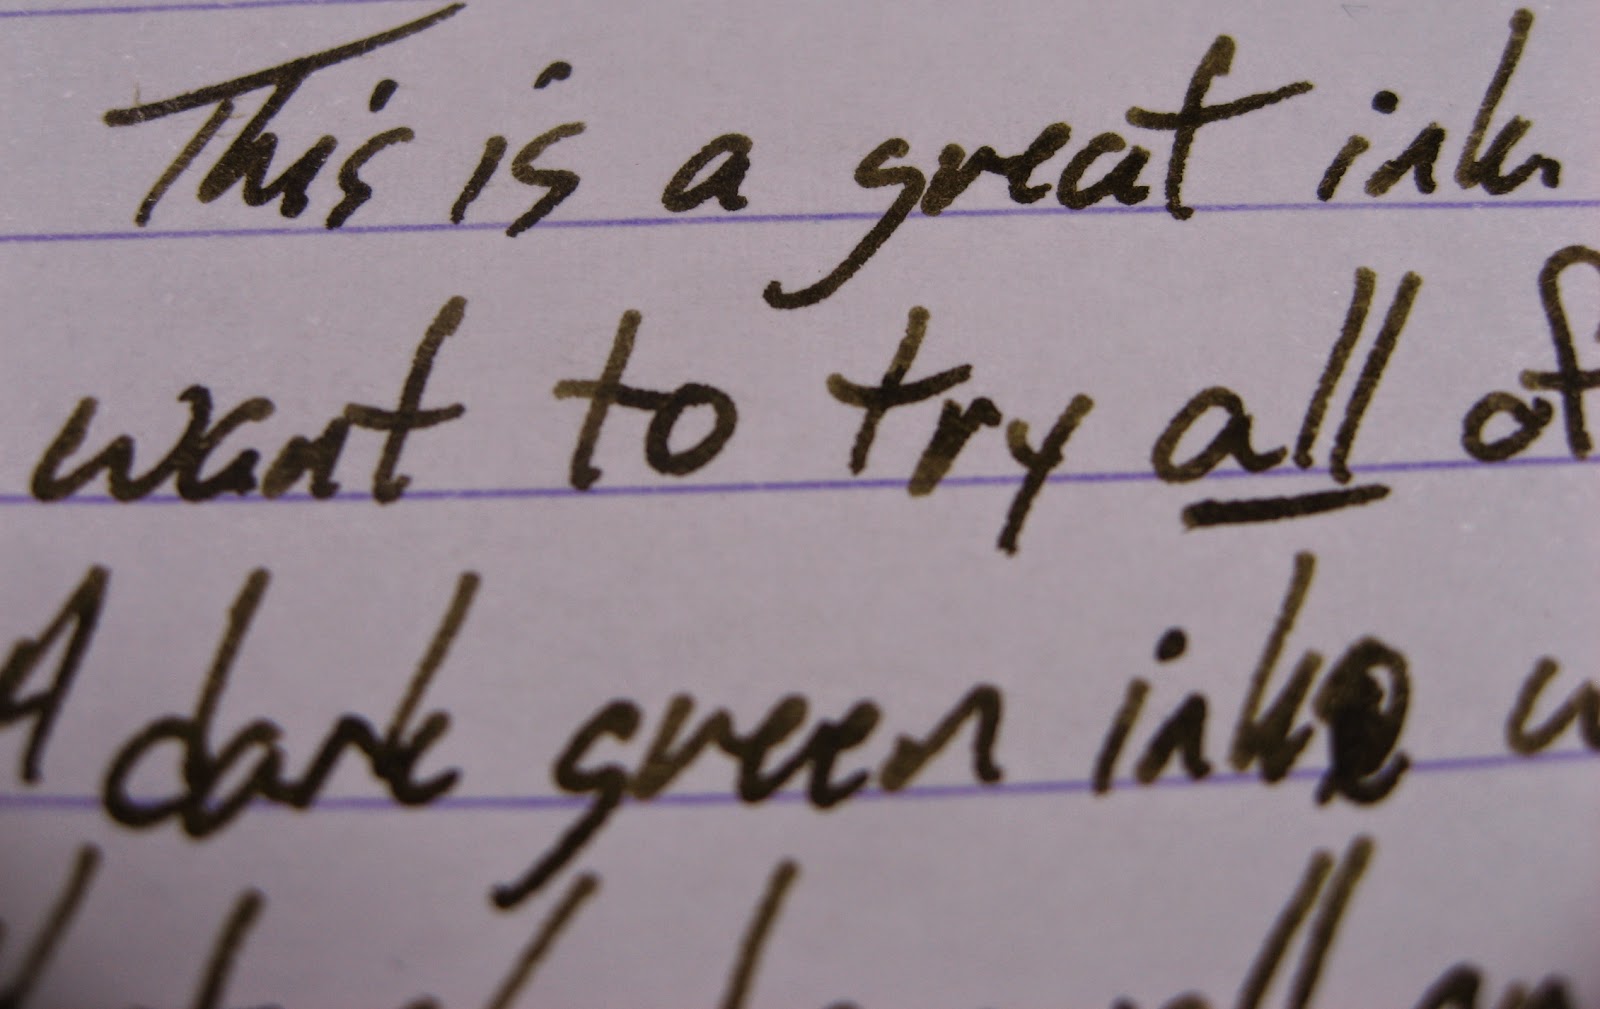 This is a great ink
want to try all of
A dark green ink